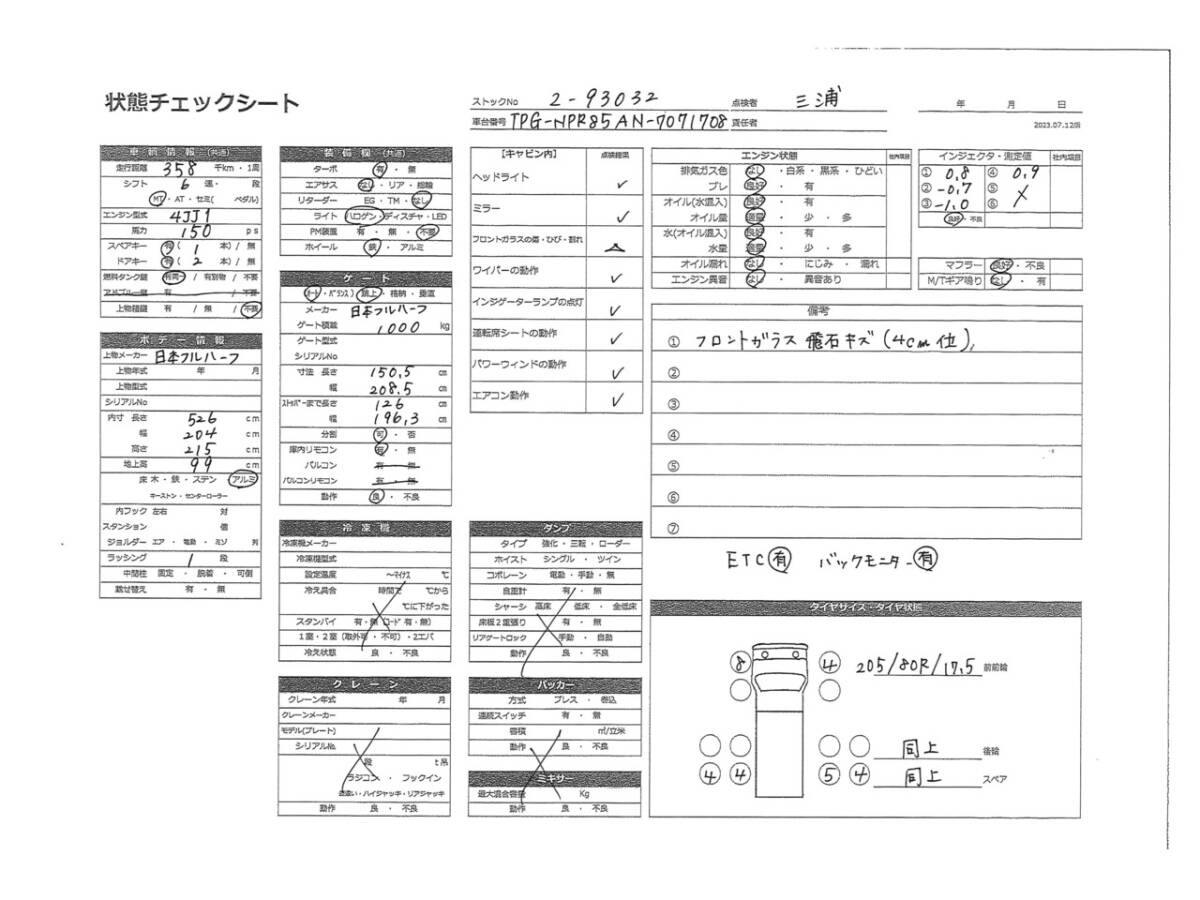 状態チェックシート
ストックNo 2-93032 点検者 三浦 年 月 日
車台番号 TPG-NPR85AN-7071708 責任者
2023.07.12版
車輌情報(共通)
走行距離 358 千km・1周
シフト 6 速・ 段
MT・AT・セミ( ペダル)
エンジン型式 4JJ1
馬力 150 ps
スペアキー 有( 1 本)/ 無
ドアキー 有( 2 本)/ 無
燃料タンク鍵 有 / 有別物 / 不要
アドブルー鍵 有 / 不要
上物積鍵 有 / 無 / 不要
ボデー情報
上物メーカー 日本フルハーフ
上物年式 年 月
上物型式
シリアルNo
内寸 長さ 526 cm
幅 204 cm
高さ 215 cm
地上高 99 cm
床 木・鉄・ステン アルミ
キーストン・センターローラー
内フック 左右 対
スタンション 個
ジョルダー エア ・ 電動 ・ ミゾ 列
ラッシング 1 段
中間柱 固定 ・ 脱着 ・ 可倒
載せ替え 有 ・ 無
装備欄(共通)
ターボ 有 ・ 無
エアサス なし・リア・総輪
リターダー EG・TM・なし
ライト ハロゲン・ディスチャ・LED
PM装置 有 ・ 無 ・ 不要
ホイール 鉄 ・ アルミ
ゲート
オート・バランス) 跳上・格納・垂直
メーカー 日本フルハーフ
ゲート積載 1,000 kg
ゲート型式
シリアルNo
寸法 長さ 150.5 cm
幅 208.5 cm
ストッパーまで長さ 126 cm
幅 196.3 cm
分割 可 ・ 否
庫内リモコン 有 ・ 無
パルコン 有 ・ 無
パルコンリモコン 有 ・ 無
動作 良 ・ 不良
冷凍機
冷凍機メーカー
冷凍機型式
設定温度 ～マイナス ℃
冷え具合 時間で ℃から
℃に下がった
スタンバイ 有・無(コード有・無)
1室・2室(取外可・不可)・2エバ
冷え状態 良 ・ 不良
クレーン
クレーン年式 年 月
クレーンメーカー
モデル(プレート)
シリアルNo.
段 t吊
ラジコン ・ フックイン
・ハイジャッキ・リアジャッキ
動作 良 ・ 不良
【キャビン内】 点検結果
ヘッドライト ✓
ミラー ✓
フロントガラスの傷・ひび・割れ △
ワイパーの動作 ✓
インジゲーターランプの点灯 ✓
運転席シートの動作 ✓
パワーウィンドの動作 ✓
エアコン動作 ✓
ダンプ
タイプ 強化・三転・ローダー
ホイスト シングル ・ ツイン
コボレーン 電動・手動・無
自重計 有 ・ 無
シャーシ 高床 ・ 低床 ・ 全低床
床板2重張り 有 ・ 無
リアゲートロック 手動 ・ 自動
動作 良 ・ 不良
パッカー
方式 プレス ・ 巻込
連続スイッチ 有 ・ 無
容積 ㎥/立米
動作 良 ・ 不良
ミキサー
最大混合容量 Kg
動作 良 ・ 不良
エンジン状態 社内項目
排気ガス色 なし・白系・黒系・ひどい
ブレ 良好 ・ 有
オイル(水混入) 良好 ・ 有
オイル量 適量 ・ 少 ・ 多
水(オイル混入) 良好 ・ 有
水量 適量 ・ 少 ・ 多
オイル漏れ なし ・ にじみ ・ 漏れ
エンジン異音 なし ・ 異音あり
インジェクタ・測定値 社内項目
① 0.8 ④ 0.9
② -0.7 ⑤
③ -1.0 ⑥
良好・不良
マフラー 良好・不良
M/Tギア鳴り なし ・ 有
備考
① フロントガラス 飛石キズ(4cm位),
②
③
④
⑤
⑥
⑦
ETC 有 バックモニター 有
タイヤサイズ・タイヤ状態
8 4 205/80R/17.5 前前輪
同上 後輪
4 4 5 4 同上 スペア